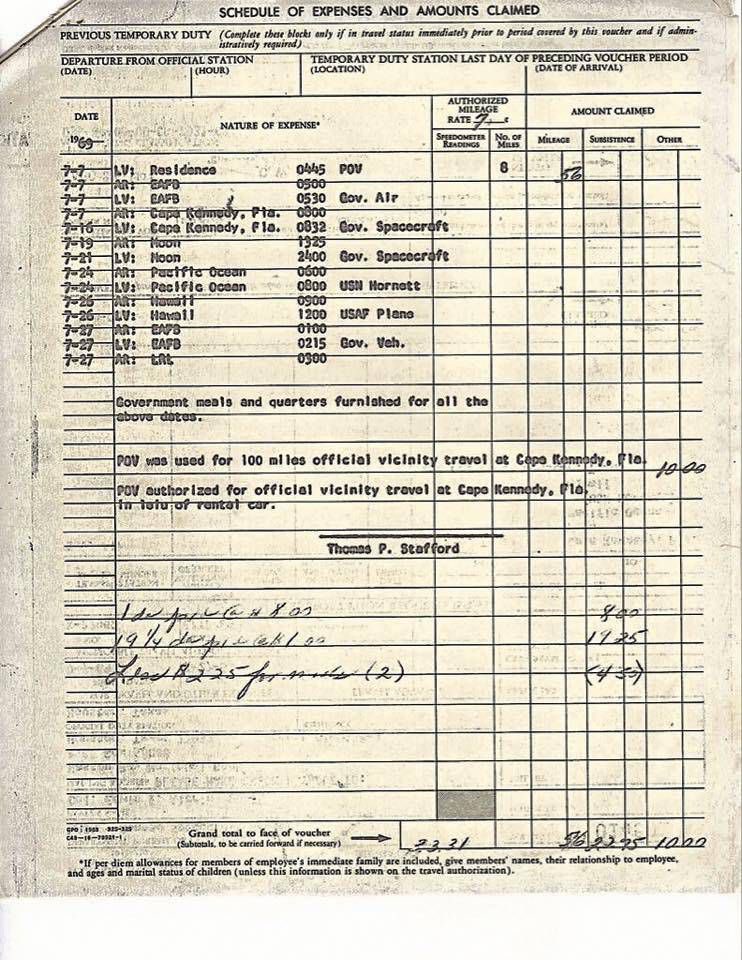 SCHEDULE OF EXPENSES AND AMOUNTS CLAIMED
PREVIOUS TEMPORARY DUTY (Complete these blocks only if in travel status immediately prior to period covered by this voucher and if admin-
istratively required)
DEPARTURE FROM OFFICIAL STATION TEMPORARY DUTY STATION LAST DAY OF PRECEDING VOUCHER PERIOD
(DATE) (HOUR) (LOCATION) (DATE OF ARRIVAL)
DATE NATURE OF EXPENSE* AUTHORIZED MILEAGE RATE 7 c AMOUNT CLAIMED
1969 SPEEDOMETER READINGS NO. OF MILES MILEAGE SUBSISTENCE OTHER
7-7 LV: Residence 0445 POV 8 56
7-7 AR: EAFB 0500
7-7 LV: EAFB 0530 Gov. Air
7-7 AR: Cape Kennedy, Fla. 0800
7-16 LV: Cape Kennedy, Fla. 0832 Gov. Spacecraft
7-19 AR: Moon 1325
7-21 LV: Moon 2400 Gov. Spacecraft
7-24 AR: Pacific Ocean 0600
7-24 LV: Pacific Ocean 0800 USN Hornett
7-26 AR: Hawaii 0900
7-26 LV: Hawaii 1200 USAF Plane
7-27 AR: EAFB 0100
7-27 LV: EAFB 0215 Gov. Veh.
7-27 AR: LRL 0300
Government meals and quarters furnished for all the
above dates.
POV was used for 100 miles official vicinity travel at Cape Kennedy, Fla. 10.00
POV authorized for official vicinity travel at Cape Kennedy, Fla.
in leiu of rental car.
Thomas P. Stafford
1 day @ $8.00 8.00
19 1/4 days @ 1.00 19.25
Less $2.25 for meals (2) (4.50)
Grand total to face of voucher
(Subtotals, to be carried forward if necessary) 33.31 56 22.75 10.00
*If per diem allowances for members of employee's immediate family are included, give members' names, their relationship to employee,
and ages and marital status of children (unless this information is shown on the travel authorization).